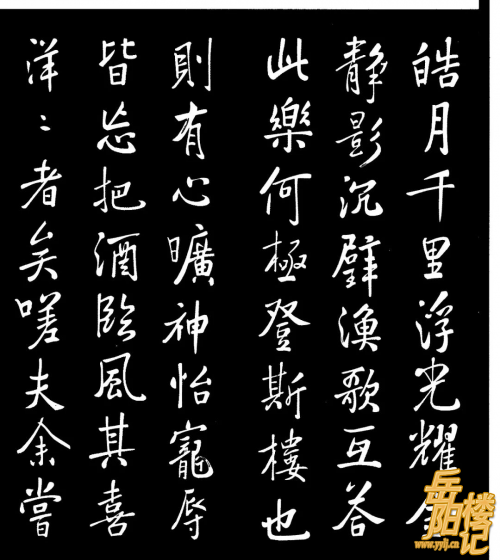 皓月千里浮光耀金
静影沉璧漁歌互答
此樂何極登斯樓也
則有心曠神怡寵辱
皆忘把酒臨風其喜
洋〻者矣嗟夫余嘗
岳阳楼记
www.yylj.cn